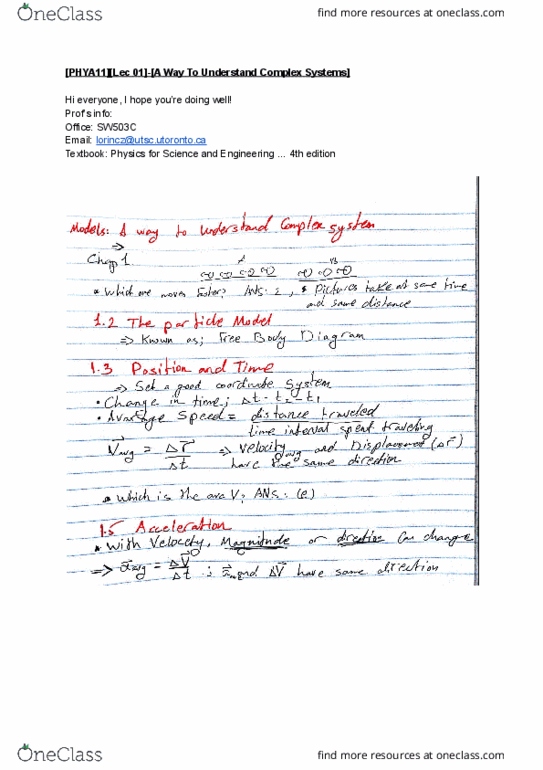 OneClass
find more resources at oneclass.com
[PHYA11][Lec 01]-[A Way To Understand Complex Systems]
Hi everyone, I hope you're doing well!
Prof's info:
Office: SW503C
Email: lorincz@utsc.utoronto.ca
Textbook: Physics for Science and Engineering ... 4th edition
Models: A way to understand Complex system
⇒
Chap 1
A B
* Which one moves faster? ANS: 2, * Pictures take at same time
and same distance
1.2 The particle Model
⇒ Known as; Free Body Diagram
1.3 Position and Time
⇒ Set a good coordinate system
• Change in time; Δt = t₂ - t₁
• Average Speed = distance traveled
time interval spent traveling
V⃗avg = Δr⃗ / Δt ⇒ Velocity avg and Displacement (Δr⃗)
have the same direction
* Which is the ava V? ANS: (e)
1.5 Acceleration
* With Velocity, Magnitude or direction Can change
⇒ a⃗avg = ΔV⃗ / Δt ; a⃗avg and ΔV⃗ have same direction
OneClass
find more resources at oneclass.com